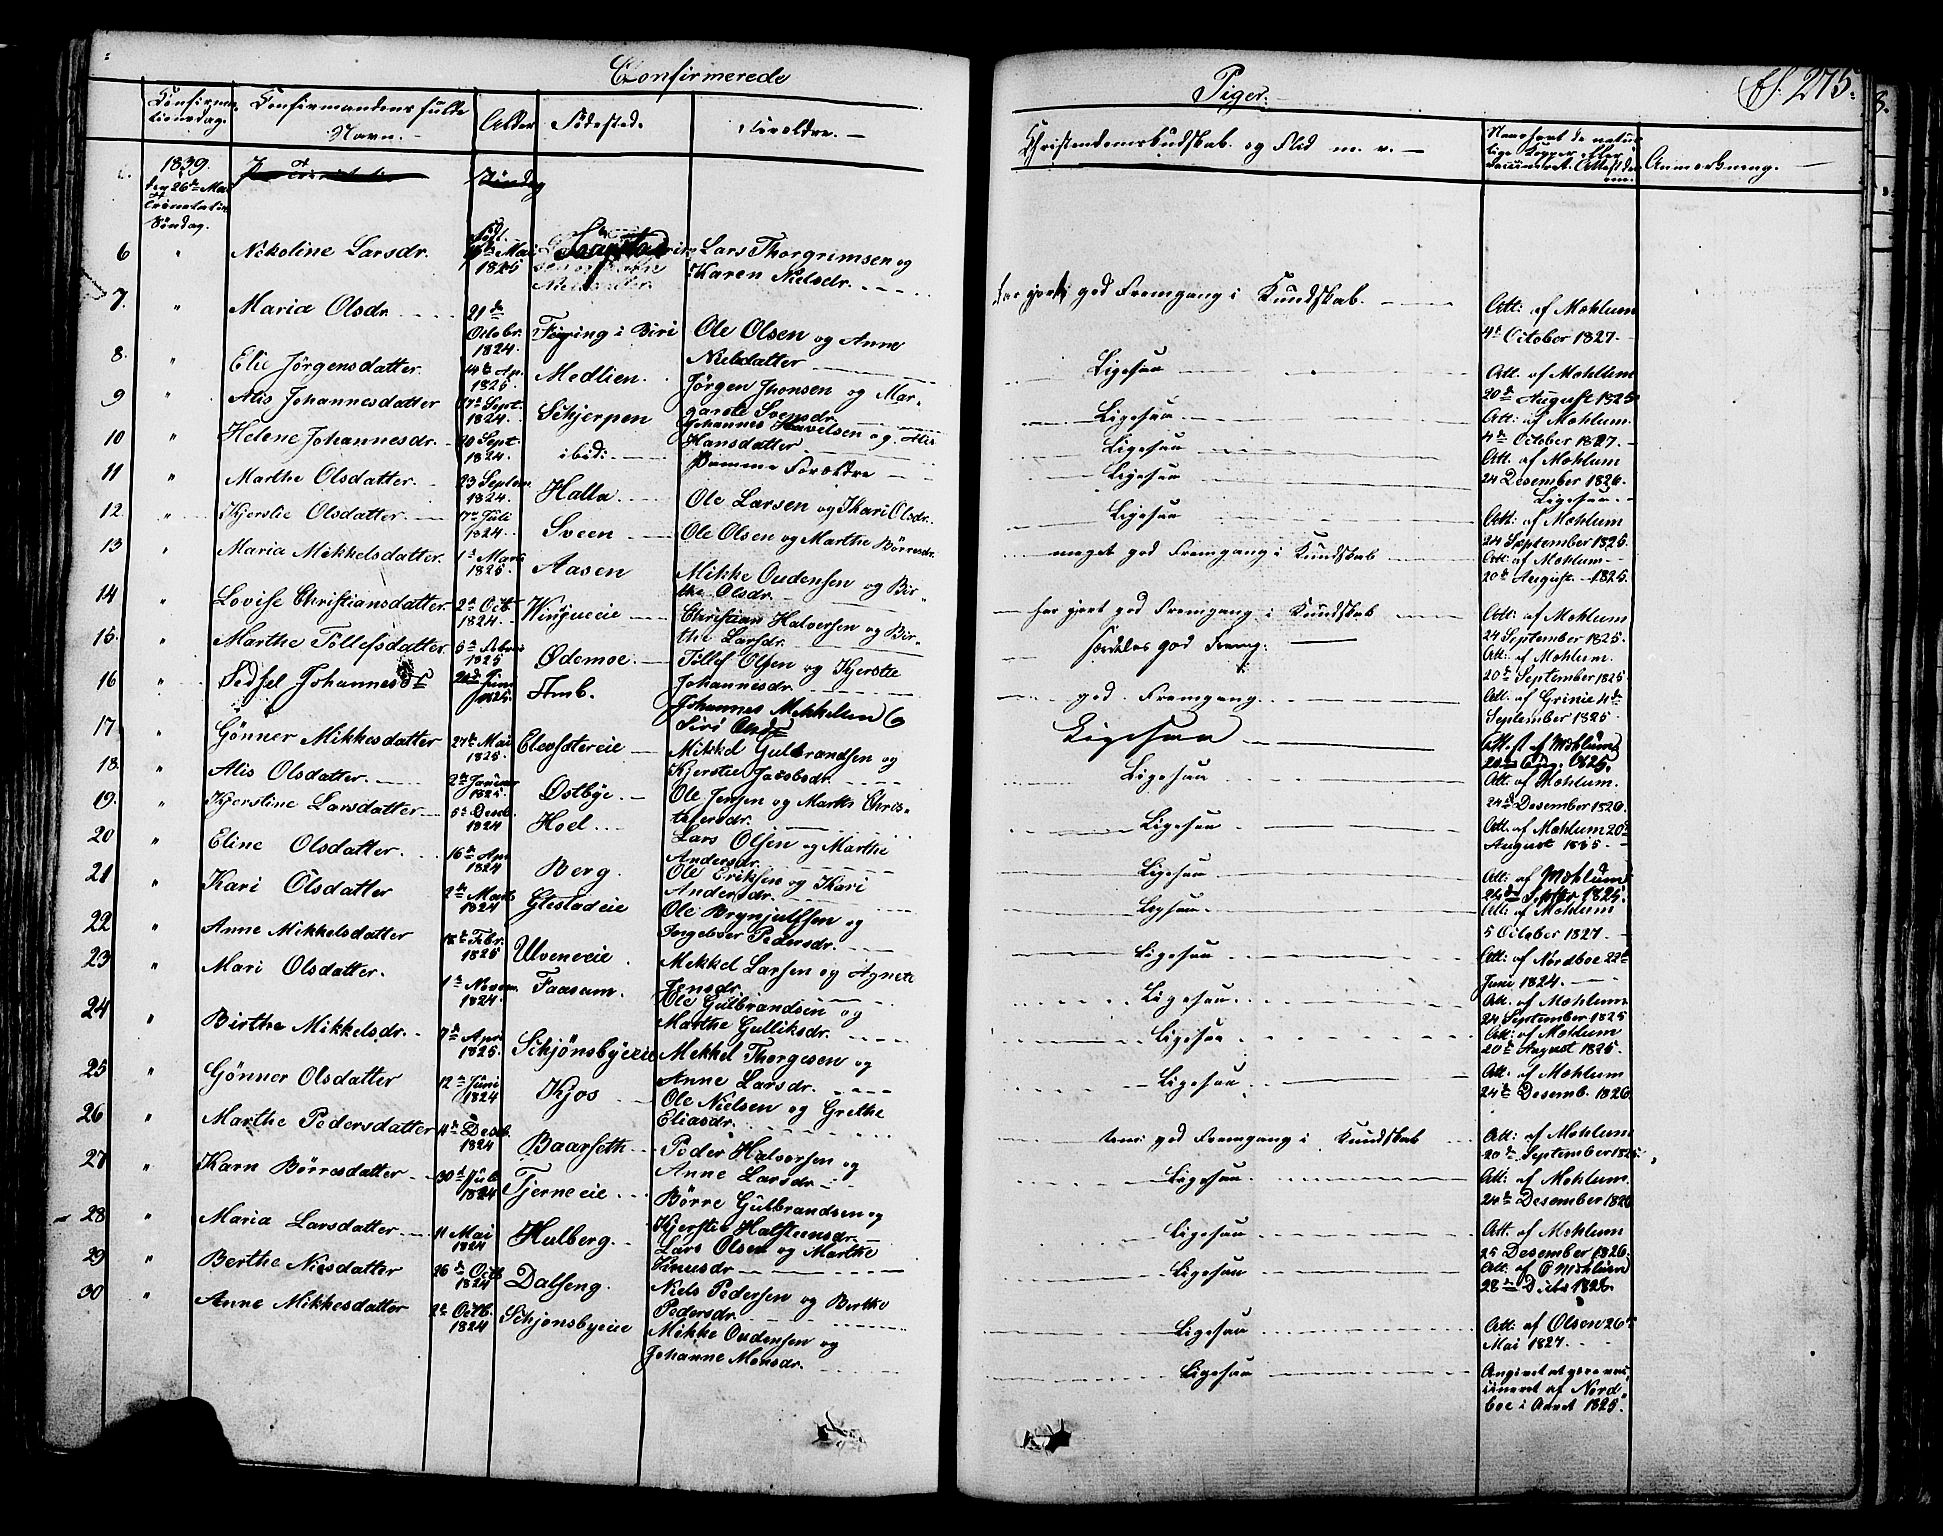 Confirmerede
Piger.
275.
Confirma-
tionsdag.
Confirmandens fulde
Navn.
Alder
Födested.
Foreldre.
Christendomskundskab og Flid m. v.
Naar havt de natur-
lige Kopper eller
vaccineret. Attest der-
om.
Anmærkning.
1839.
den 26de Mai
Trinitatis
Söndag.
6 " Nikoline Larsdr. Mai 1825 Lars Thorgrimsen og
Karen Nielsdr.
har gjort god Fremgang i Kundskab. Att: af Mæhlum
4de October 1827.
7. " Maria Olsdr. 21de Octobr. 1824. Feiring i Biri Ole Olsen og Anne
Nielsdatter
Ligesaa Att. af Mæhlum
20de August 1825
8. " Elie Jörgensdatter. 14de Ap. 1825 Medlien. Jörgen Jvonsen og Mar-
garete Svensdr.
Ligesaa Att: af Mæhlum
4de October 1827.
9 " Alis Johannesdatter 17de Sept. 1824. Schjerpen Johannes Pavelsen og Alis
Hansdatter
Ligesaa Att. af Mæhlum
24 Desember 1826.
10 " Helene Johannesdr. 10 Sept. 1824. ibid: Samme Foreldre
Ligesaa Ligesaa.
11 " Marthe Olsdatter. 23 Septem. 1824. Halla. Ole Larsen og Kari Olsdr.
Ligesaa Att: af Mæhlum
24 September 1826.
12. " Kjerstie Olsdatter. 17de Juli 1824. Sveen Ole Olsen og Marthe Börresdr.
meget god Fremgang i Kundskab Att: af Mæhlum
20de August 1825.
13 " Maria Mikkelsdatter. 1ste Marts 1825. Aasen Mikke Oudensen og Bir-
the Olsdr.
har gjort god Fremgang i Kundskab Att: af Mæhlum
24 September 1825.
14 " Lovise Christiansdatter. 2de Oct. 1824. Wingneeie Christian Halvorsen og Bir-
the Larsdr.
særdeles god Fremg: Att: af Mæhlum.
20de September 1825
15. " Marthe Töllefsdatter. 5te Febr. 1825 Ödemoe. Töllef Olsen og Kjerstie
Johannesdr.
god Fremgang. Att. af Grinie 4de
September 1825.
16 " Sidsel Johannesdr 24de Juni 1825. Amb. Johannes Mikkelsen og
Siri Olsdr
Ligesaa Attest af Mæhlum
20de Aug. 1825.
17. " Gönner Mikkesdatter 27de Mai 1825. Clevsetereie Mikkel Gulbrandsen og
Kjerstie Jacobsdr.
Ligesaa Att. af Mæhlum.
24de Desember 1826.
18. " Alis Olsdatter. 2de Januar 1825. Östbye. Ole Jensen og Marthe Chris-
tofersdr.
Ligesaa Att. af Mæhlum 20de
August 1835.
19. " Kjerstine Larsdatter 5te Desb. 1824 Hoel. Lars Olsen og Marthe
Andersdr.
Ligesaa Att: af Mæhlum
24de Septbr 1825.
20 " Eline Olsdatter. 16de Apr. 1824 Berg. Ole Eriksen og Kari
Andersdr.
Ligesaa. Att: af Mæhlum
5 October 1827
21 " Kari Olsdatter 2de Marts 1824 Glestadeie Ole Brynjulfsen og
Ingeboer Pedersdr.
Ligesaa Att: af Nordboe 22de
Juni 1824.
22 " Anne Mikkelsdatter 18de Febr. 1825 Ulveneeie. Mekkel Larsen og Agnete
Jensdr.
Ligesaa. Att. af Mæhlum
24 September 1825
23 " Mari Olsdatter. 1ste Novem. 1824. Faasum. Ole Gulbrandsen og
Marthe Gulliksdr.
Ligesaa Att: af Mæhlum
20de August 1825.
24 " Birthe Mikkelsdr. 7de Apr. 1825. Schjönsbyeeie Mekkel Thorgesen og
Anne Larsdr.
Ligesaa Att: af Mæhlum
24de Desemb. 1826.
25 " Gönner Olsdatter 12te Juni 1824 Kjos Ole Nielsen og Grethe
Eliasdr.
god Fremgang i Kundskab Att: af Mæhlum
20de September 1825
26 " Marthe Pedersdatter 11te Desb. 1824 Baarseth Peder Halvorsen og
Anne Larsdr.
Ligesaa Att. af Mæhlum.
24de Desember 1826
27 " Karn Börresdatter 30te Juli 1824 Tjerneeie Börre Gulbrandsen og
Kjerstie Halsteensdr.
Ligesaa Att. af Mæhlum
25 Desember 1826.
28 " Maria Larsdatter 11 Mai 1824 Hulberg. Lars Olsen og Marthe
Knusdr
Ligesaa Att. af P Mæhlum
28de Desbr 1826.
29 " Berthe Nilsdatter 26de Octb 1824 Dalseng. Niels Pedersen og Berthe
Pedersdr.
Ligesaa Att: af Olsen 26de
Mai 1827.
30 " Anne Mikkesdatter 2de Octb. 1824 Schjönsbyeeie Mikke Oudensen og
Johanne Monsdr.
Ligesaa Angivet at være vac-
cineret af Nord-
boe i Aaret 1825.